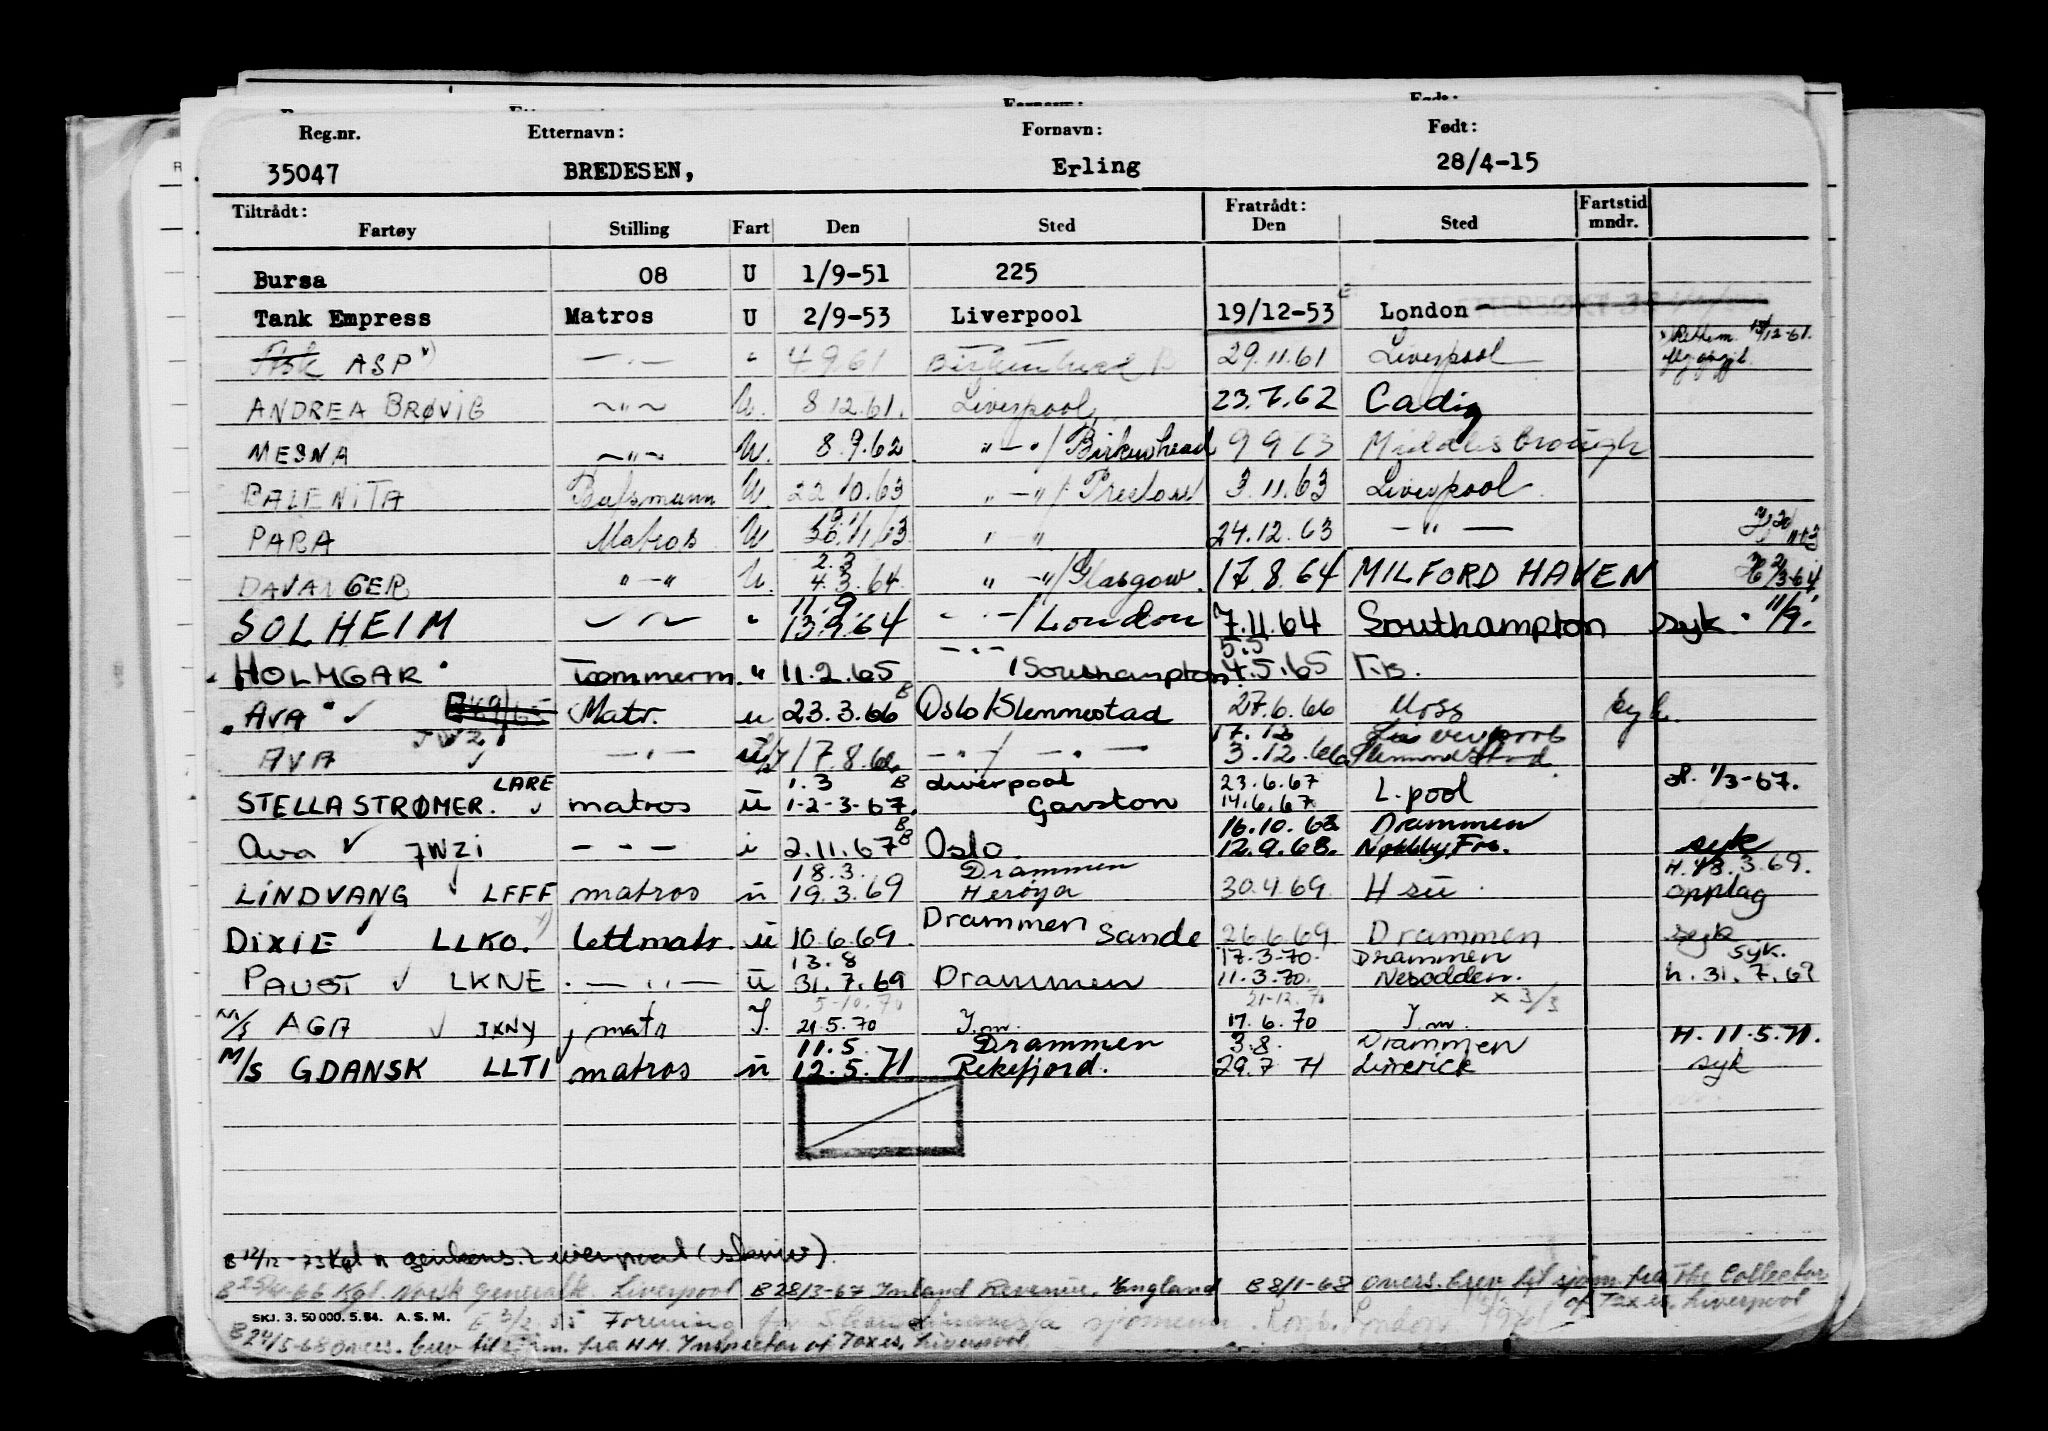 Reg.nr. Etternavn: Fornavn: Født:
35047 BREDESEN, Erling 28/4-15
Tiltrådt: Fratrådt: Fartstid
Fartøy Stilling Fart Den Sted Den Sted mndr.
Bursa 08 U 1/9-51 225
Tank Empress Matros U 2/9-53 Liverpool 19/12-53 London
ASP x) — " — " 4.9.61 Birkenhead 29.11.61 Liverpool
ANDREA BRØVIG — " — U. 8.12.61. Liverpool 23.7.62 Cadiz
MESNA — " — U. 8.9.62 " — " / Birkenhead 9 9 63 Middlesbrough
BALENITA Båtsmann U 22.10.63 " — " / Preston 3.11.63 Liverpool
PARA Matros U " " 24.12.63 — " —
2.3
DAVANGER " — " U. 4.3.64. " — " / Glasgow. 17.8.64 MILFORD HAVEN
11.9
SOLHEIM — " — " 13.9.64 — " — / London 7.11.64 Southampton syk. 11/9.
5.5
"HOLMGAR" Tømmerm. " 11.2.65 — " — / Southampton 4.5.65 T.B.
"AVA" Matr. u 23.3.66 B Oslo/Slemmestad 27.6.66 Moss syk.
JWZI 17.12 Liverpool
AVA — " — u 17.8.66 — " — / — " — 3.12.66 Slemmestad
LARE 1.3 B Liverpool 23.6.67 H. 1/3-67.
STELLA STRØMER. matros u 1-2-3-67. Garston 14.6.67 L.pool
16.10.68 Drammen
Ava JWZI — " — u 2.11.67 B Oslo 12.9.68. syk
18.3. Drammen H. 18.3.69.
LINDVANG LFFF matros u 19.3.69 Herøya 30.4.69 Hsu opplag
Drammen
DIXIE LLKO. x) lettmatr. u 10.6.69. Sande 26.6.69 Drammen syk
13.8 17.3-70. Drammen syk.
PAUST LKNE — " — u 31.7.69 Drammen 11.3.70. Nesodden. H. 31.7.69
5-10.70 21-12.70 x 3/3
M/S AGA JXNY matr J. 21.5.70 J.m. 17.6.70 J.m.
11.5. Drammen 3.8. Drammen H. 11.5.71.
M/S GDANSK LLTI matros u 12.5.71 Rekefjord. 29.7 71 Limerick syk
B 12/12-73 Kgl n genkons. Liverpool (skriv).
B 25/4-66 Kgl. Norsk Generalk. Liverpool B 28/3-67 Inland Revenue, England B 8/1-68 overs. brev til sjøm. fra The Collector
of Taxes, Liverpool
SKJ. 3. 50 000. 5. 54. A. S. M.
B 24/5-68 overs. brev til sjøm. fra H.M. Inspector of Taxes, Liverpool.